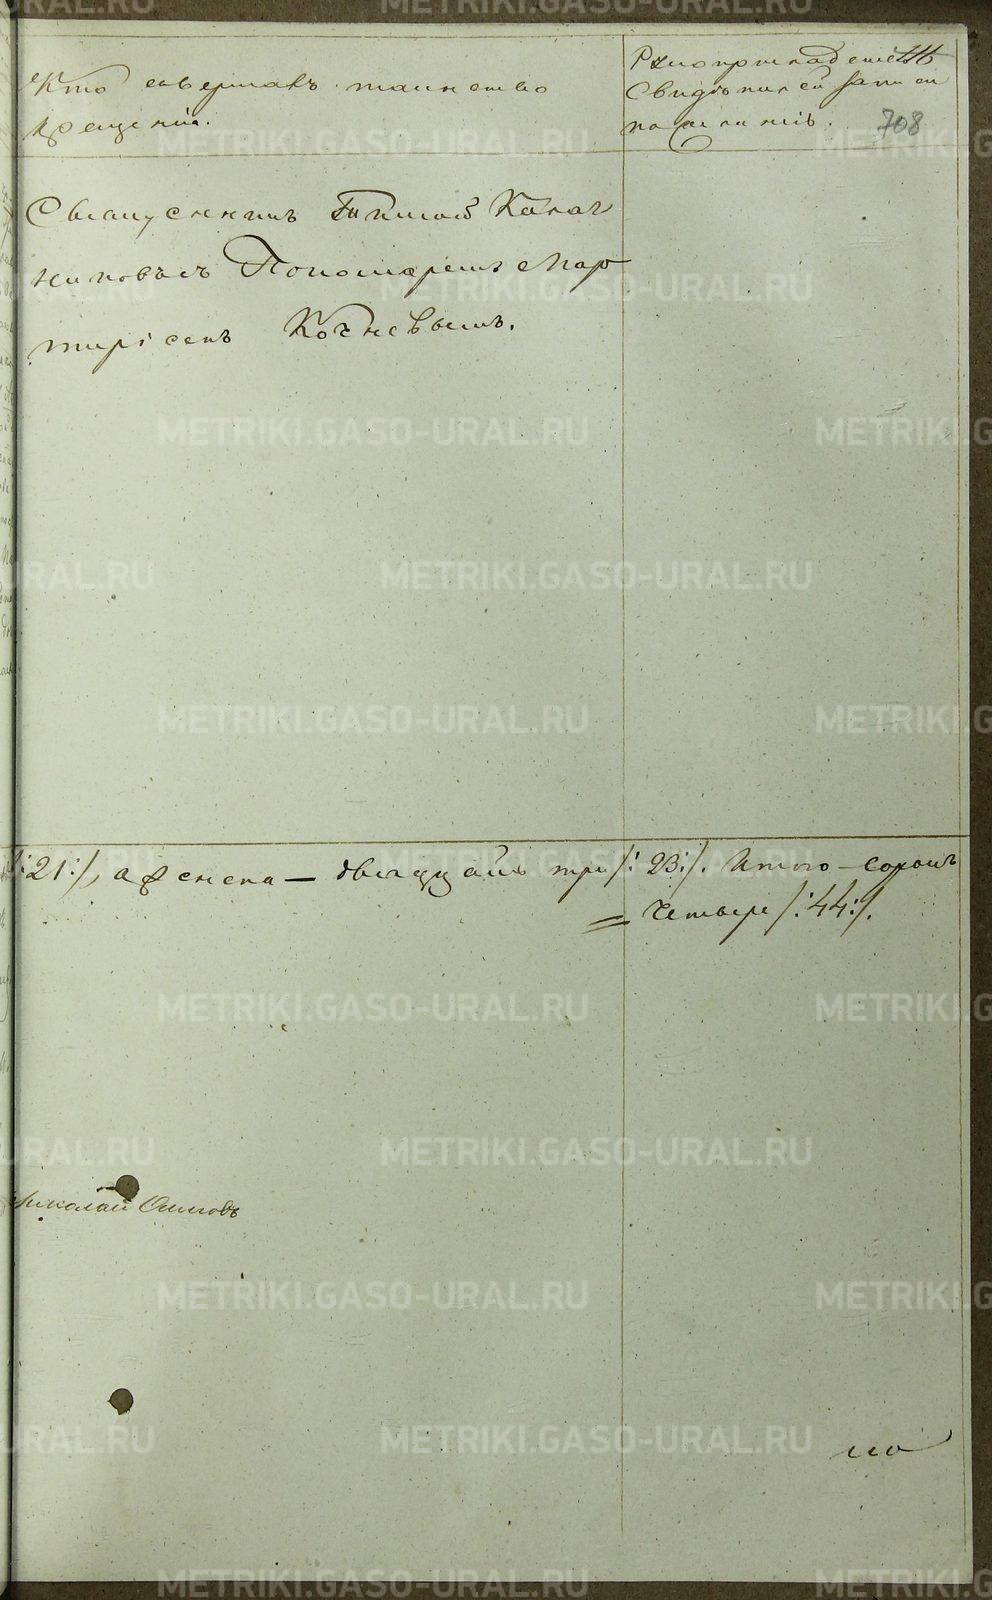 Кто совершалъ таинство
крещенія.
Рукоприкладство
Свидѣтелей записи
по желанію.
708
Священникъ Калач
никовъ съ Пономаремъ Мар
тиріемъ Кочневымъ.
/:21:/, а женска — двадцать три /:23:/. Итого — сорокъ
= четыре /:44:/.
Николай Осиповъ
но
METRIKI.GASO-URAL.RU